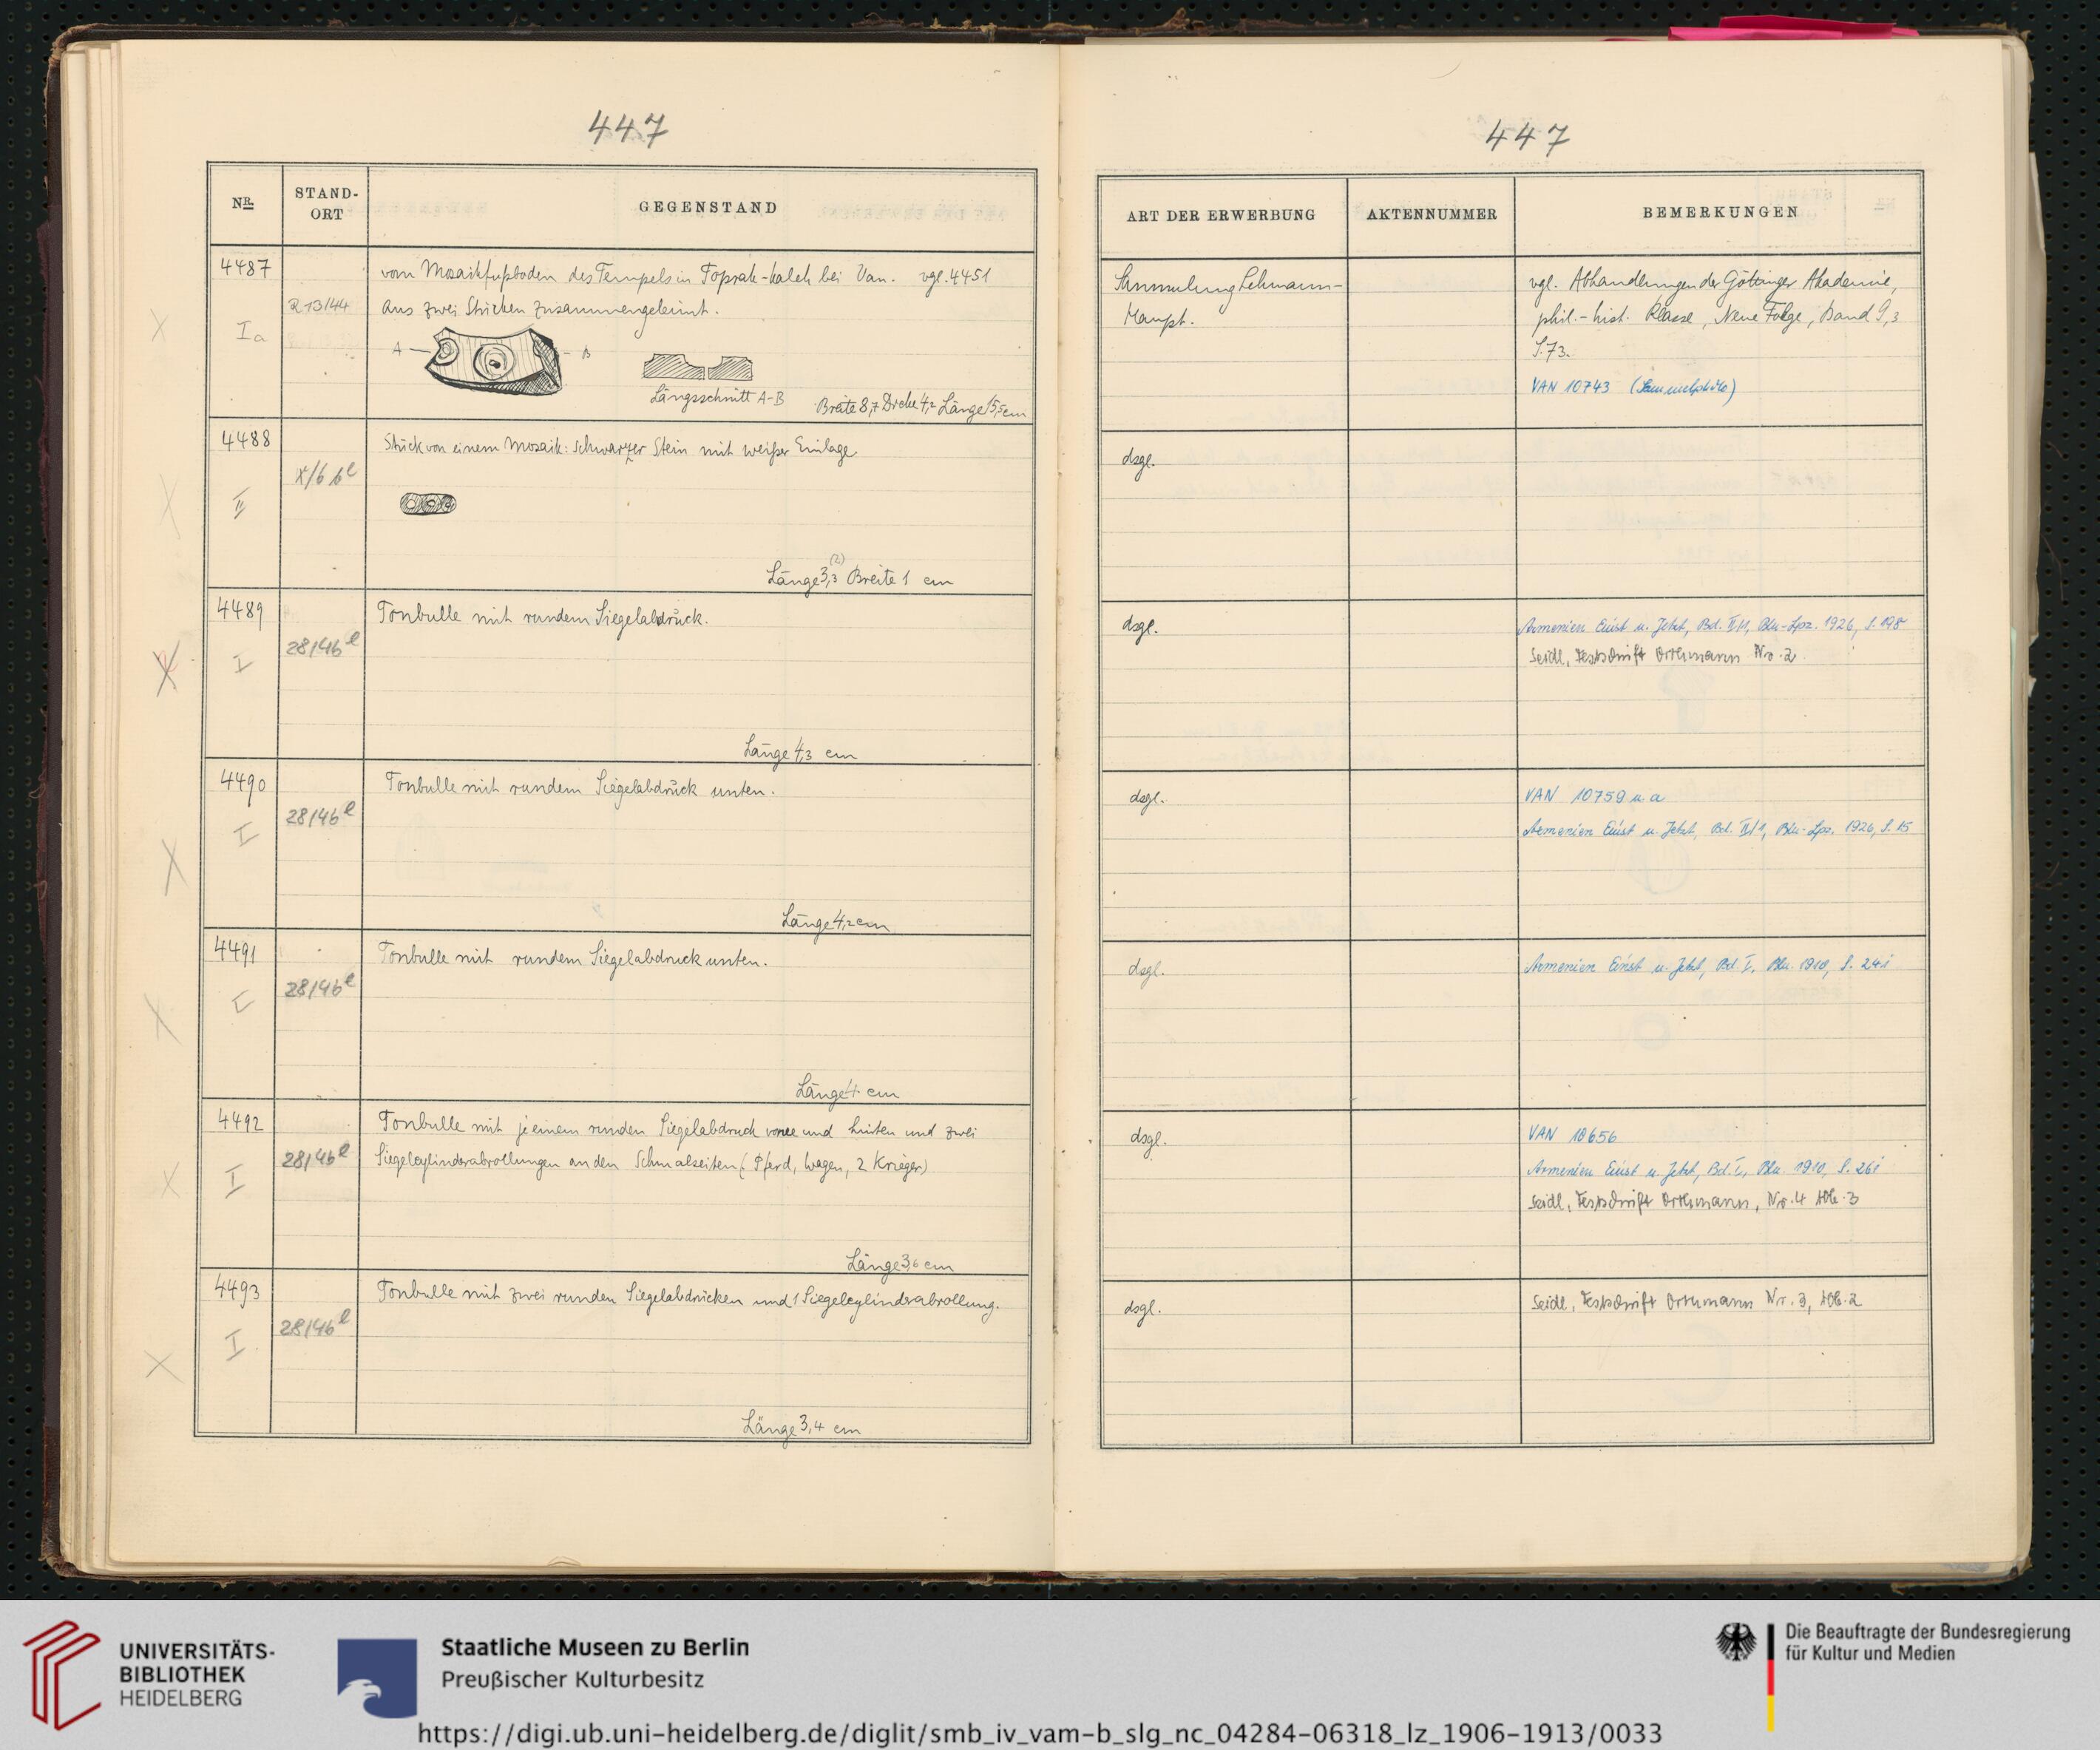 447
NR.
STAND-
ORT
GEGENSTAND
4487
R 13/44
Ia
vom Mosaikfußboden des Tempels in Toprak-kaleh bei Van. vgl. 4451
Aus zwei Stücken zusammengeleimt.
A
B
Längsschnitt A-B
Breite 8,7 Dicke 4,2 Länge 15,5 cm
4488
II
Stück von einem Mosaik: schwarzer Stein mit weißer Einlage
(2)
Länge 3,3 Breite 1 cm
4489
28/46 l
I
Tonbulle mit rundem Siegelabdruck.
Länge 4,3 cm
4490
28/46 l
I
Tonbulle mit rundem Siegelabdruck unten.
Länge 4,2 cm
4491
28/46 l
I
Tonbulle mit rundem Siegelabdruck unten.
Länge 4 cm
4492
28/46 l
I
Tonbulle mit je einem runden Siegelabdruck vorne und hinten und zwei
Siegelcylinderabrollungen an den Schmalseiten (Pferd, Wagen, 2 Krieger)
Länge 3,6 cm
4493
28/46 l
I
Tonbulle mit zwei runden Siegelabdrücken und 1 Siegelcylinderabrollung.
Länge 3,4 cm
447
ART DER ERWERBUNG
AKTENNUMMER
BEMERKUNGEN
Sammlung Lehmann-
Haupt.
vgl. Abhandlungen der Göttinger Akademie,
phil.-hist. Klasse, Neue Folge, Band 9,3
S. 73.
VAN 10743
dsgl.
dsgl.
Armenien Einst u. Jetzt, Bd. II/1, Bln-Lpz. 1926, S. 198
Seidl, Festschrift Orthmann Nr. 2
dsgl.
VAN 10759 u. a
Armenien Einst u. Jetzt, Bd. II/1, Bln-Lpz. 1926, S. 15
dsgl.
Armenien Einst u. Jetzt, Bd. I, Bln. 1910, S. 241
dsgl.
VAN 10656
Armenien Einst u. Jetzt, Bd. I, Bln. 1910, S. 261
Seidl, Festschrift Orthmann, Nr. 4 Abb. 3
dsgl.
Seidl, Festschrift Orthmann Nr. 3, Abb. 2
UNIVERSITÄTS-
BIBLIOTHEK
HEIDELBERG
Staatliche Museen zu Berlin
Preußischer Kulturbesitz
Die Beauftragte der Bundesregierung
für Kultur und Medien
https://digi.ub.uni-heidelberg.de/diglit/smb_iv_vam-b_slg_nc_04284-06318_lz_1906-1913/0033